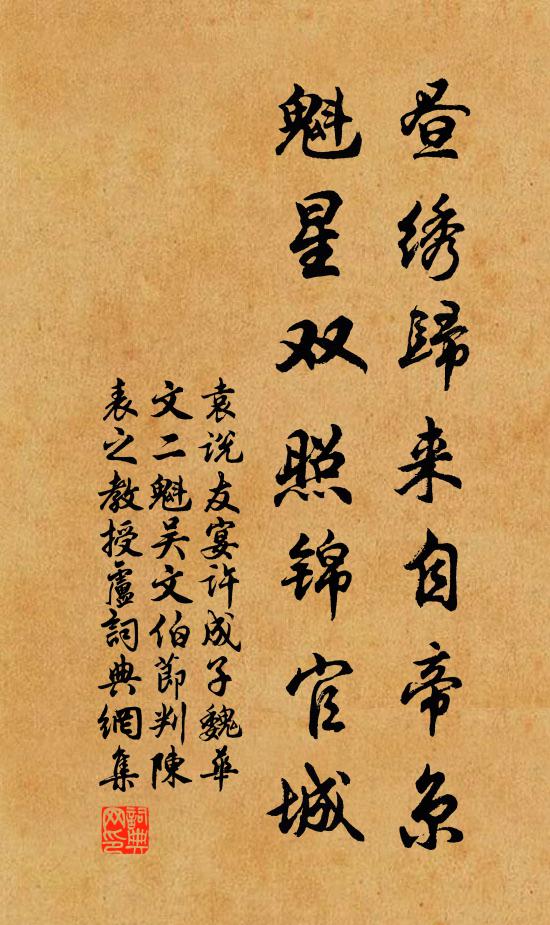 昼绣歸来自帝京
魁星双照锦官城
袁说友宴许成子魏華
文二魁吴文伯節判陳
表之教授盧詞典網集
詞典
网印